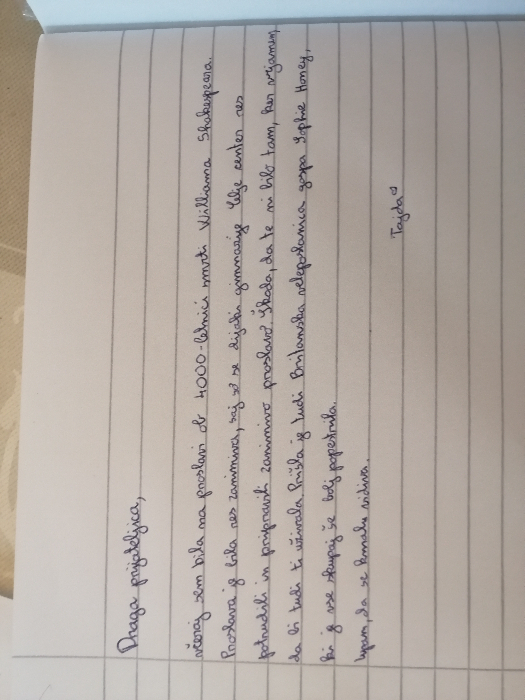 Draga prijateljica,
včeraj sem bila na proslavi ob 4000-letnici smrti Williama Shakespeara.
Proslava je bila res zanimiva, saj so se dijaki gimnazije Celje center res
potrudili in pripravili zanimivo proslavo. Škoda, da te ni bilo tam, ker verjamem,
da bi tudi ti uživala. Prišla je tudi Britanska veleposlanica gospa Sophie Honey,
ki je vse skupaj še bolj popestrila.
Upam, da se kmalu vidiva.
Tajda